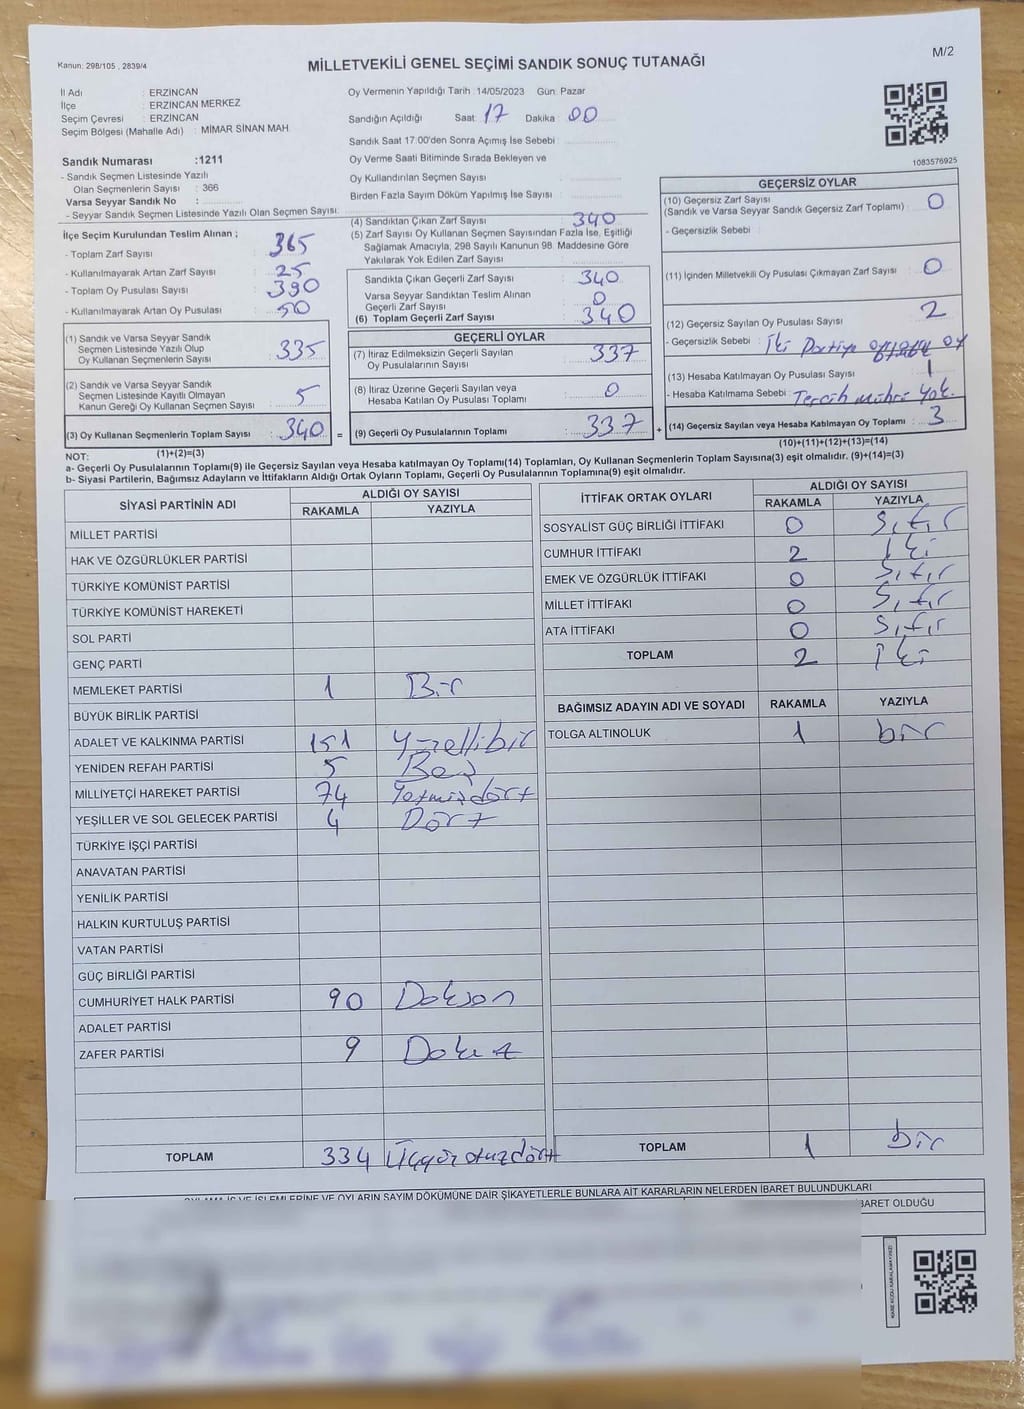 Kanun: 298/105 , 2839/4
MİLLETVEKİLİ GENEL SEÇİMİ SANDIK SONUÇ TUTANAĞI
M/2
İl Adı : ERZİNCAN
İlçe : ERZİNCAN MERKEZ
Seçim Çevresi : ERZİNCAN
Seçim Bölgesi (Mahalle Adı) : MİMAR SİNAN MAH.
Sandık Numarası :1211
- Sandık Seçmen Listesinde Yazılı
Olan Seçmenlerin Sayısı : 366
Varsa Seyyar Sandık No :
- Seyyar Sandık Seçmen Listesinde Yazılı Olan Seçmen Sayısı:
Oy Vermenin Yapıldığı Tarih : 14/05/2023 Gün: Pazar
Sandığın Açıldığı Saat: 17 Dakika : 00
Sandık Saat 17:00'den Sonra Açımış İse Sebebi :
Oy Verme Saati Bitiminde Sırada Bekleyen ve
Oy Kullandırılan Seçmen Sayısı :
Birden Fazla Sayım Döküm Yapılmış İse Sayısı :
1083576925
İlçe Seçim Kurulundan Teslim Alınan ;
- Toplam Zarf Sayısı : 365
- Kullanılmayarak Artan Zarf Sayısı : 25
- Toplam Oy Pusulası Sayısı : 390
- Kullanılmayarak Artan Oy Pusulası : 50
(1) Sandık ve Varsa Seyyar Sandık
Seçmen Listesinde Yazılı Olup
Oy Kullanan Seçmenlerin Sayısı : 335
(2) Sandık ve Varsa Seyyar Sandık
Seçmen Listesinde Kayıtlı Olmayan
Kanun Gereği Oy Kullanan Seçmen Sayısı : 5
(3) Oy Kullanan Seçmenlerin Toplam Sayısı : 340 =
(1)+(2)=(3)
(4) Sandıktan Çıkan Zarf Sayısı : 340
(5) Zarf Sayısı Oy Kullanan Seçmen Sayısından Fazla İse, Eşitliği
Sağlamak Amacıyla, 298 Sayılı Kanunun 98. Maddesine Göre
Yakılarak Yok Edilen Zarf Sayısı :
Sandıkta Çıkan Geçerli Zarf Sayısı : 340
Varsa Seyyar Sandıktan Teslim Alınan
Geçerli Zarf Sayısı : 0
(6) Toplam Geçerli Zarf Sayısı : 340
GEÇERLİ OYLAR
(7) İtiraz Edilmeksizin Geçerli Sayılan
Oy Pusulalarının Sayısı : 337
(8) İtiraz Üzerine Geçerli Sayılan veya
Hesaba Katılan Oy Pusulası Toplamı : 0
(9) Geçerli Oy Pusulalarının Toplamı : 337 +
GEÇERSİZ OYLAR
(10) Geçersiz Zarf Sayısı
(Sandık ve Varsa Seyyar Sandık Geçersiz Zarf Toplamı) : 0
- Geçersizlik Sebebi :
(11) İçinden Milletvekili Oy Pusulası Çıkmayan Zarf Sayısı : 0
(12) Geçersiz Sayılan Oy Pusulası Sayısı : 2
- Geçersizlik Sebebi : İki Partiye oy
(13) Hesaba Katılmayan Oy Pusulası Sayısı : 1
- Hesaba Katılmama Sebebi : Tercih mührü yok.
(14) Geçersiz Sayılan veya Hesaba Katılmayan Oy Toplamı : 3
(10)+(11)+(12)+(13)=(14)
NOT:
a- Geçerli Oy Pusulalarının Toplamı(9) ile Geçersiz Sayılan veya Hesaba katılmayan Oy Toplamı(14) Toplamları, Oy Kullanan Seçmenlerin Toplam Sayısına(3) eşit olmalıdır. (9)+(14)=(3)
b- Siyasi Partilerin, Bağımsız Adayların ve İttifakların Aldığı Ortak Oyların Toplamı, Geçerli Oy Pusulalarının Toplamına(9) eşit olmalıdır.
SİYASİ PARTİNİN ADI ALDIĞI OY SAYISI
RAKAMLA YAZIYLA
MİLLET PARTİSİ
HAK VE ÖZGÜRLÜKLER PARTİSİ
TÜRKİYE KOMÜNİST PARTİSİ
TÜRKİYE KOMÜNİST HAREKETİ
SOL PARTİ
GENÇ PARTİ
MEMLEKET PARTİSİ 1 Bir
BÜYÜK BİRLİK PARTİSİ
ADALET VE KALKINMA PARTİSİ 151 Yüzellibir
YENİDEN REFAH PARTİSİ 5 Beş
MİLLİYETÇİ HAREKET PARTİSİ 74 Yetmişdört
YEŞİLLER VE SOL GELECEK PARTİSİ 4 Dört
TÜRKİYE İŞÇİ PARTİSİ
ANAVATAN PARTİSİ
YENİLİK PARTİSİ
HALKIN KURTULUŞ PARTİSİ
VATAN PARTİSİ
GÜÇ BİRLİĞİ PARTİSİ
CUMHURİYET HALK PARTİSİ 90 Doksan
ADALET PARTİSİ
ZAFER PARTİSİ 9 Dokuz
TOPLAM 334 Üçyüzotuzdört
İTTİFAK ORTAK OYLARI ALDIĞI OY SAYISI
RAKAMLA YAZIYLA
SOSYALİST GÜÇ BİRLİĞİ İTTİFAKI 0 Sıfır
CUMHUR İTTİFAKI 2 iki
EMEK VE ÖZGÜRLÜK İTTİFAKI 0 Sıfır
MİLLET İTTİFAKI 0 Sıfır
ATA İTTİFAKI 0 Sıfır
TOPLAM 2 iki
BAĞIMSIZ ADAYIN ADI VE SOYADI RAKAMLA YAZIYLA
TOLGA ALTINOLUK 1 bir
TOPLAM 1 bir
OYLAMA İŞ VE İŞLEMLERİNE VE OYLARIN SAYIM DÖKÜMÜNE DAİR ŞİKAYETLERLE BUNLARA AİT KARARLARIN NELERDEN İBARET BULUNDUKLARI
İBARET OLDUĞU